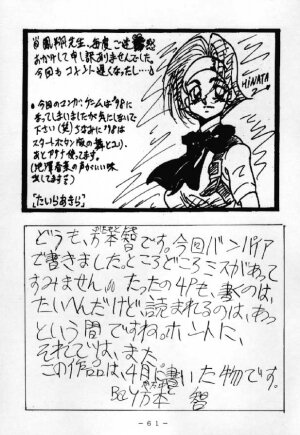 毎度ご迷惑
おかけして申し訳ありませんでした。
今回もコメント遅くなったし…。
HINATA
●今回のコンガ、ゲームは'98に
なってしまいましたが気にしないで
下さい(笑)ちなみに'98は
スタートスタン版の
あとアテナ使ってます。
出してます
[たいらあきら]
どうも、方本智です。今回バンパイア
で書きました。ところどころミスがあって
すみません。たったの4Pも、書くのは、
たいへんだけど、読まれるのは、あっ
という間ですね。ホントに、
それでは、また。
この作品は、4月に書いた物です。
By 方本 智
-61-